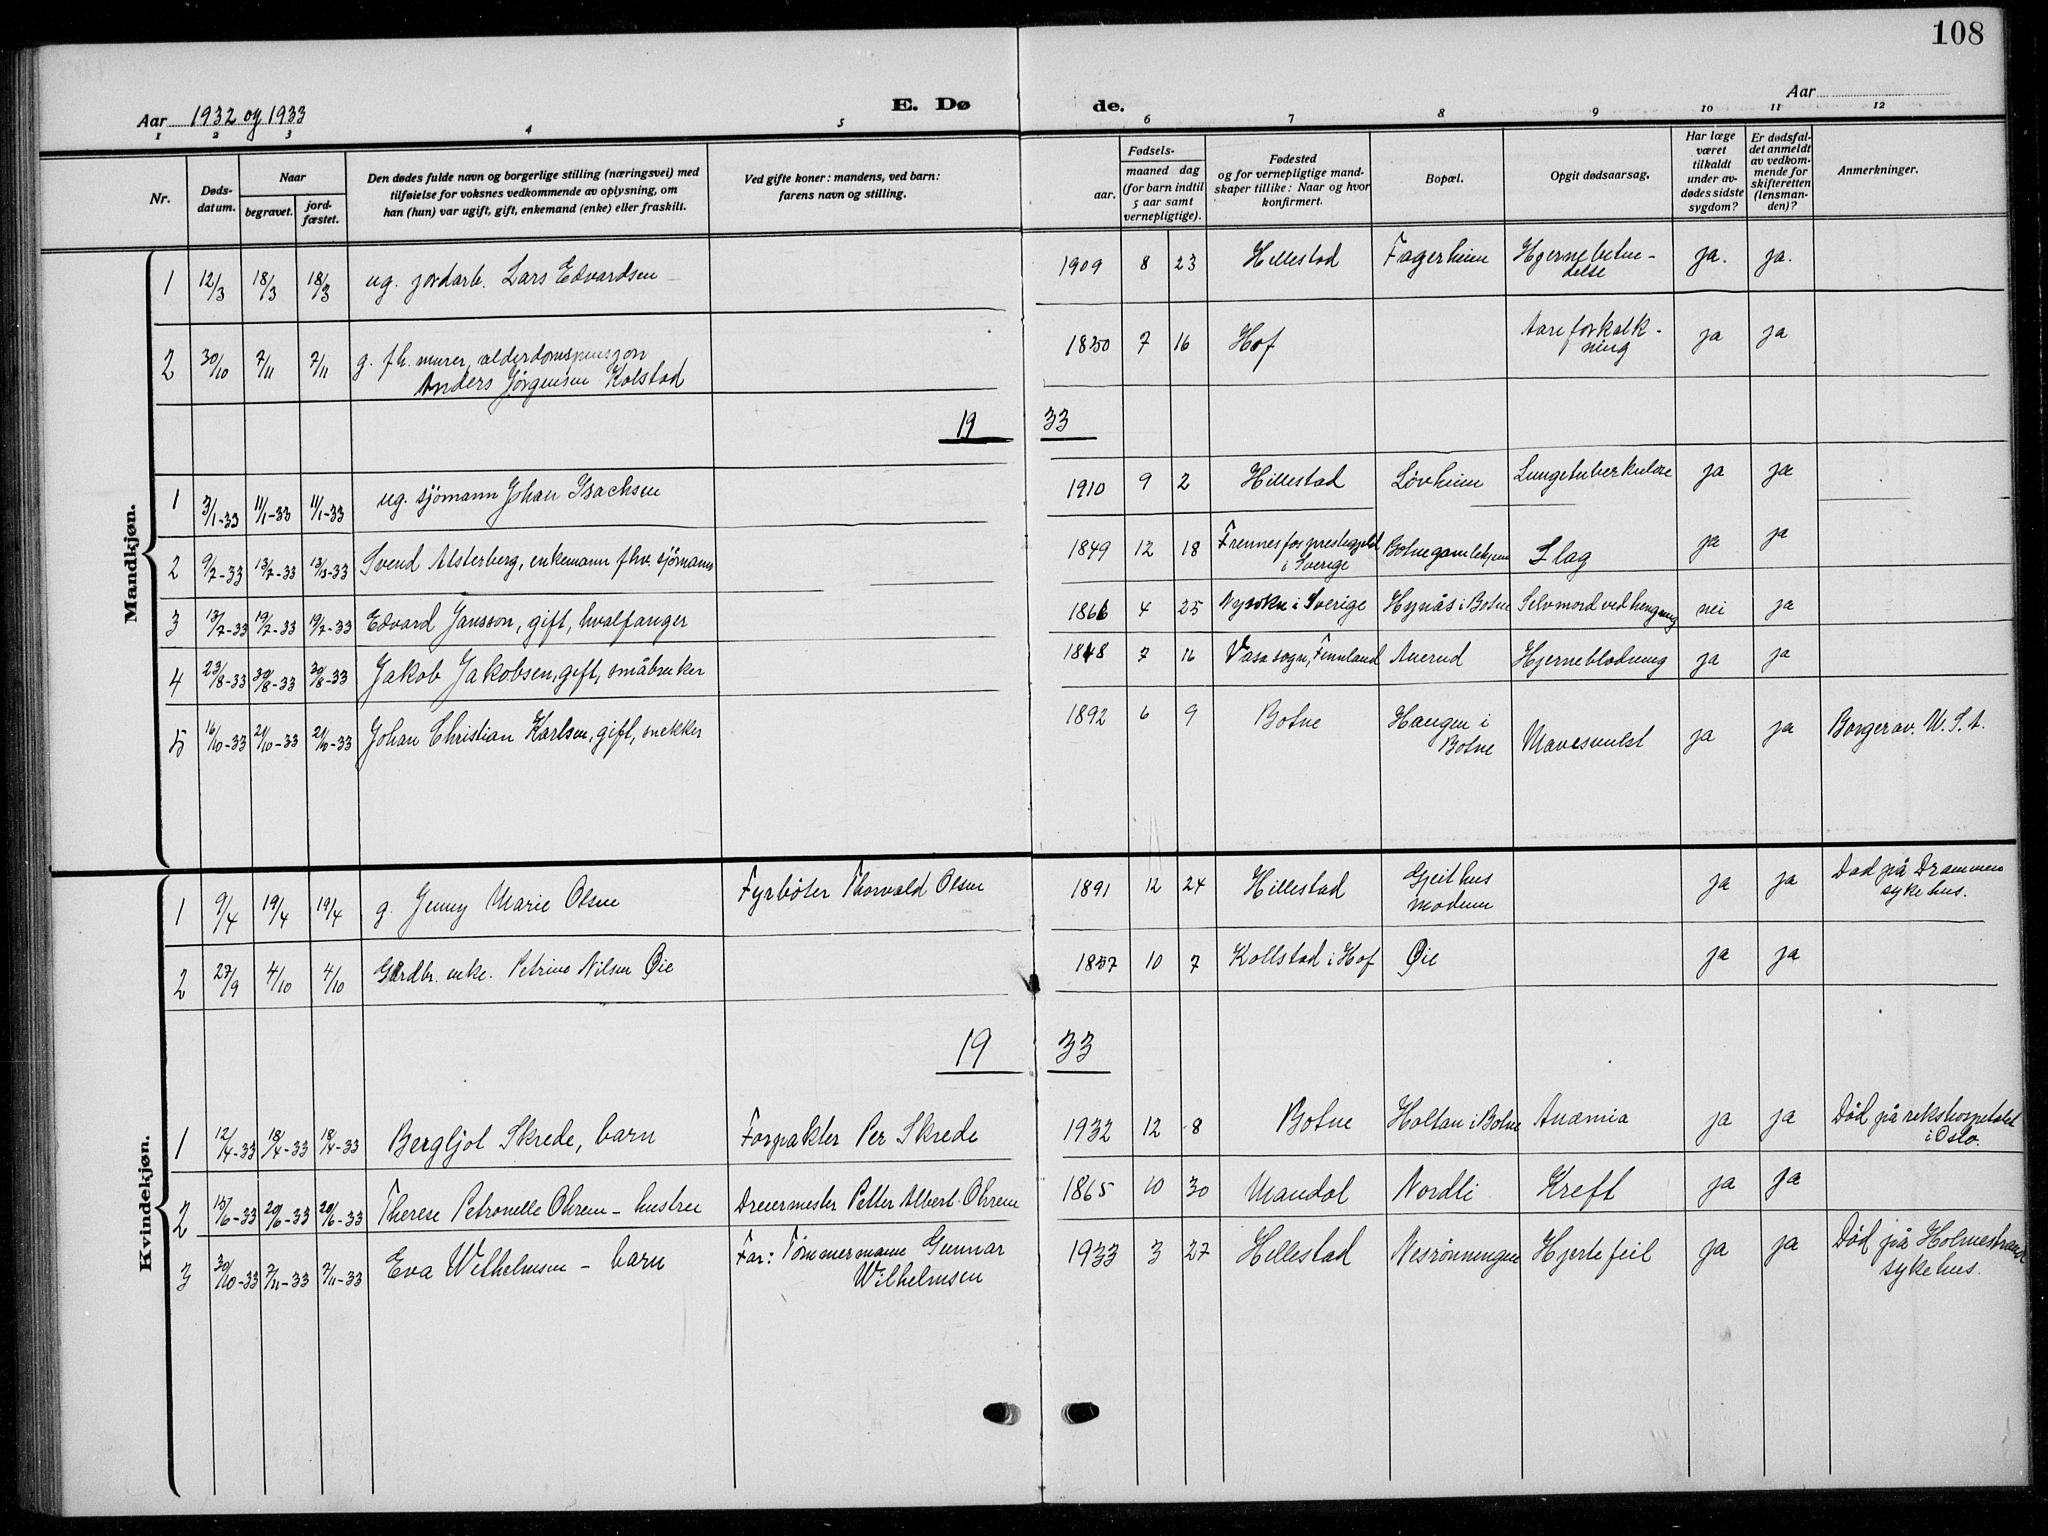 108
Aar 1932 og 1933
E. Dø de.
Aar
1 2 3 4 5 6 7 8 9 10 11 12
Nr.
Døds-
datum.
Naar
begravet.
jord-
fæstet.
Den dødes fulde navn og borgerlige stilling (næringsvei) med
tilføielse for voksnes vedkommende av oplysning, om
han (hun) var ugift, gift, enkemand (enke) eller fraskilt.
Ved gifte koner: mandens, ved barn:
farens navn og stilling.
Fødsels-
aar.
maaned dag
(for barn indtil
5 aar samt
vernepligtige).
Fødested
og for vernepligtige mand-
skaper tillike: Naar og hvor
konfirmert.
Bopæl.
Opgit dødsaarsag.
Har læge
været
tilkaldt
under av-
dødes sidste
sygdom?
Er dødsfal-
det anmeldt
av vedkom-
mende for
skifteretten
(lensman-
den)?
Anmerkninger.
Mandkjøn.
1 12/3 18/3 18/3 ug. jordarb. Lars Edvardsen 1909 8 23 Hillestad Fagerheim Hjernebetæn-
delse ja. ja.
2 30/10 7/11 7/11 g. fh. murer, alderdomspensjon
Anders Jørgensen Kolstad 1850 7 16 Hof Aareforkalk-
ning ja ja
19 33
1 3/1-33 11/1-33 11/1-33 ug. sjømann Johan Isachsen 1910 9 2 Hillestad Løvheim Lungetuberkulose ja ja
2 9/7-33 13/7-33 13/7-33 Svend Alsterberg, enkemann fhv. sjømann 1849 12 18 prestegjeld
i Sverige Botnegamlehjem Slag ja ja
3 13/7-33 19/7-33 19/7-33 Edvard Jansson, gift, hvalfanger 1866 4 25 Nysokn i Sverige Hynås i Botne Selvmord ved hengning nei ja
4 23/8-33 30/8-33 30/8-33 Jakob Jakobsen, gift, småbruker 1848 7 16 Vasa sogn, Finnland Auerud Hjerneblødning ja ja
5 16/10-33 21/10-33 21/10-33 Johan Christian Karlsen, gift, snekker 1892 6 9 Botne Haugen i
Botne Mavesvulst ja ja Borger av U.S.A.
Kvindekjøn.
1 9/4 19/4 19/4 g. Jenny Marie Olsen Fyrbøter Thorvald Olsen 1891 12 24 Hillestad Gjeithus
Modum ja ja Død på Drammen
sykehus.
2 27/9 4/10 4/10 Gårdbr. enke. Petrine Nilsen Øie 1857 10 7 Kollstad i Hof Øie ja ja
19 33
1 12/4-33 18/4-33 18/4-33 Bergljot Skrede, barn Forpakter Per Skrede 1932 12 8 Botne Holtan i Botne Anæmia ja ja Død på rikshospitalet
i Oslo.
2 15/6-33 20/6-33 20/6-33 Therese Petronelle Ohrem - hustru Dreiermester Petter Albert Ohrem 1865 10 30 Mandal Nordli Kreft ja ja
3 30/10-33 7/11-33 7/11-33 Eva Wilhelmsen - barn Far: Tømmermann Gunnar
Wilhelmsen 1933 3 27 Hillestad Nesrønningen Hjertefeil ja ja Død på Holmestrand
sykehus.